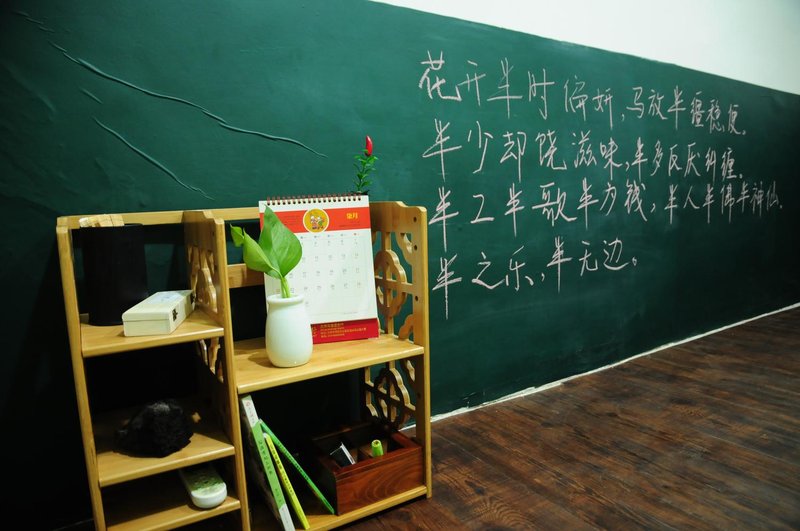 柒月
花开半时偏妍,马放半缰稳便。
半少却饶滋味,半多反厌纠缠。
半工半歌半为钱,半人半佛半神仙。
半之乐,半无边。